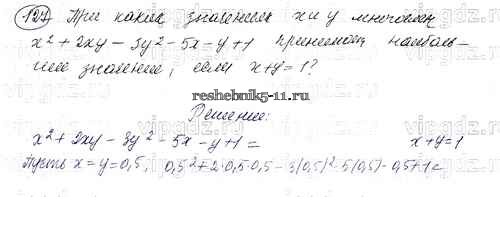 127 При каких значениях x и y многочлен
x² + 2xy − 3y² − 5x − y + 1 принимает наиболь-
шее значение, если x+y=1?
reshebnik5-11.ru
Решение:
x² + 2xy − 3y² − 5x − y + 1 = x+y=1
Пусть x=y=0,5, 0,5²+2·0,5·0,5 − 3(0,5)² 5(0,5) − 0,5+1 =